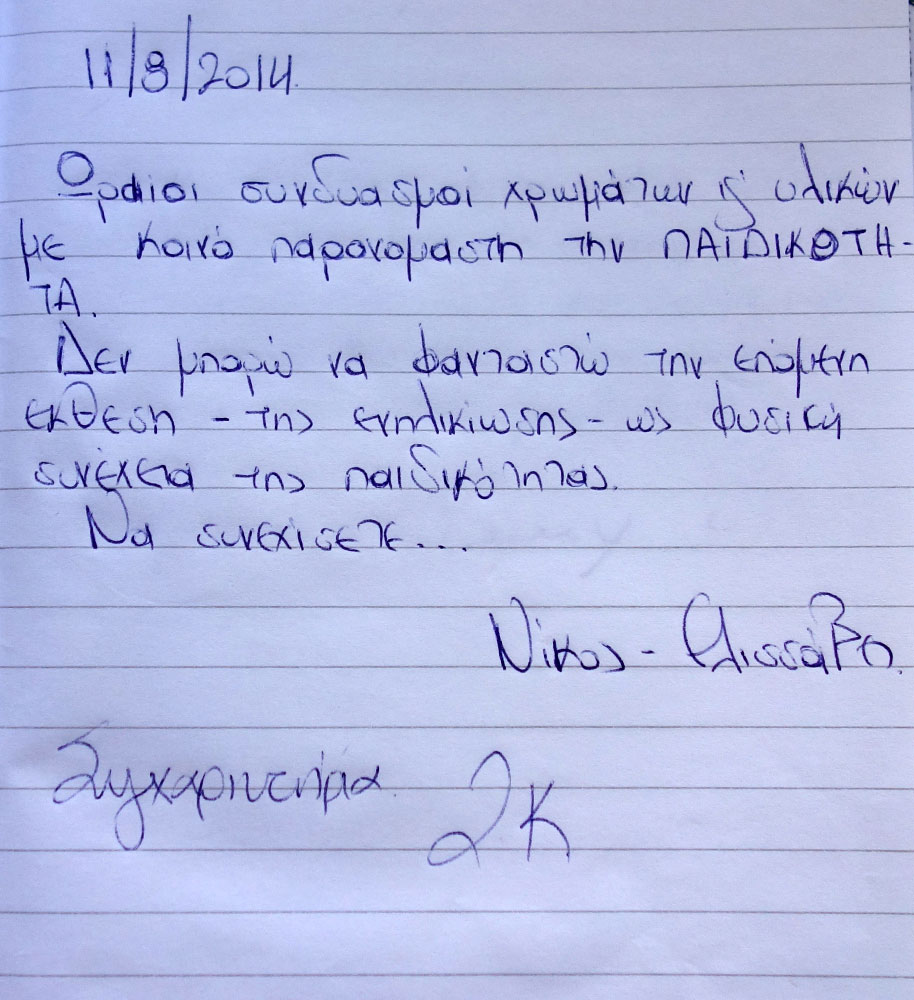 11/8/2014.
Ωραίοι συνδυασμοί χρωμάτων & υλικών
με κοινό παρονομαστή την ΠΑΙΔΙΚΟΤΗ-
ΤΑ.
Δεν μπορώ να φανταστώ την επόμενη
έκθεση - της ενηλικίωσης - ως φυσική
συνέχεια της παιδικότητας.
Να συνεχίσετε...
Νίκος - Ελισσάβετ.
Συγχαρητήρια ΣΚ